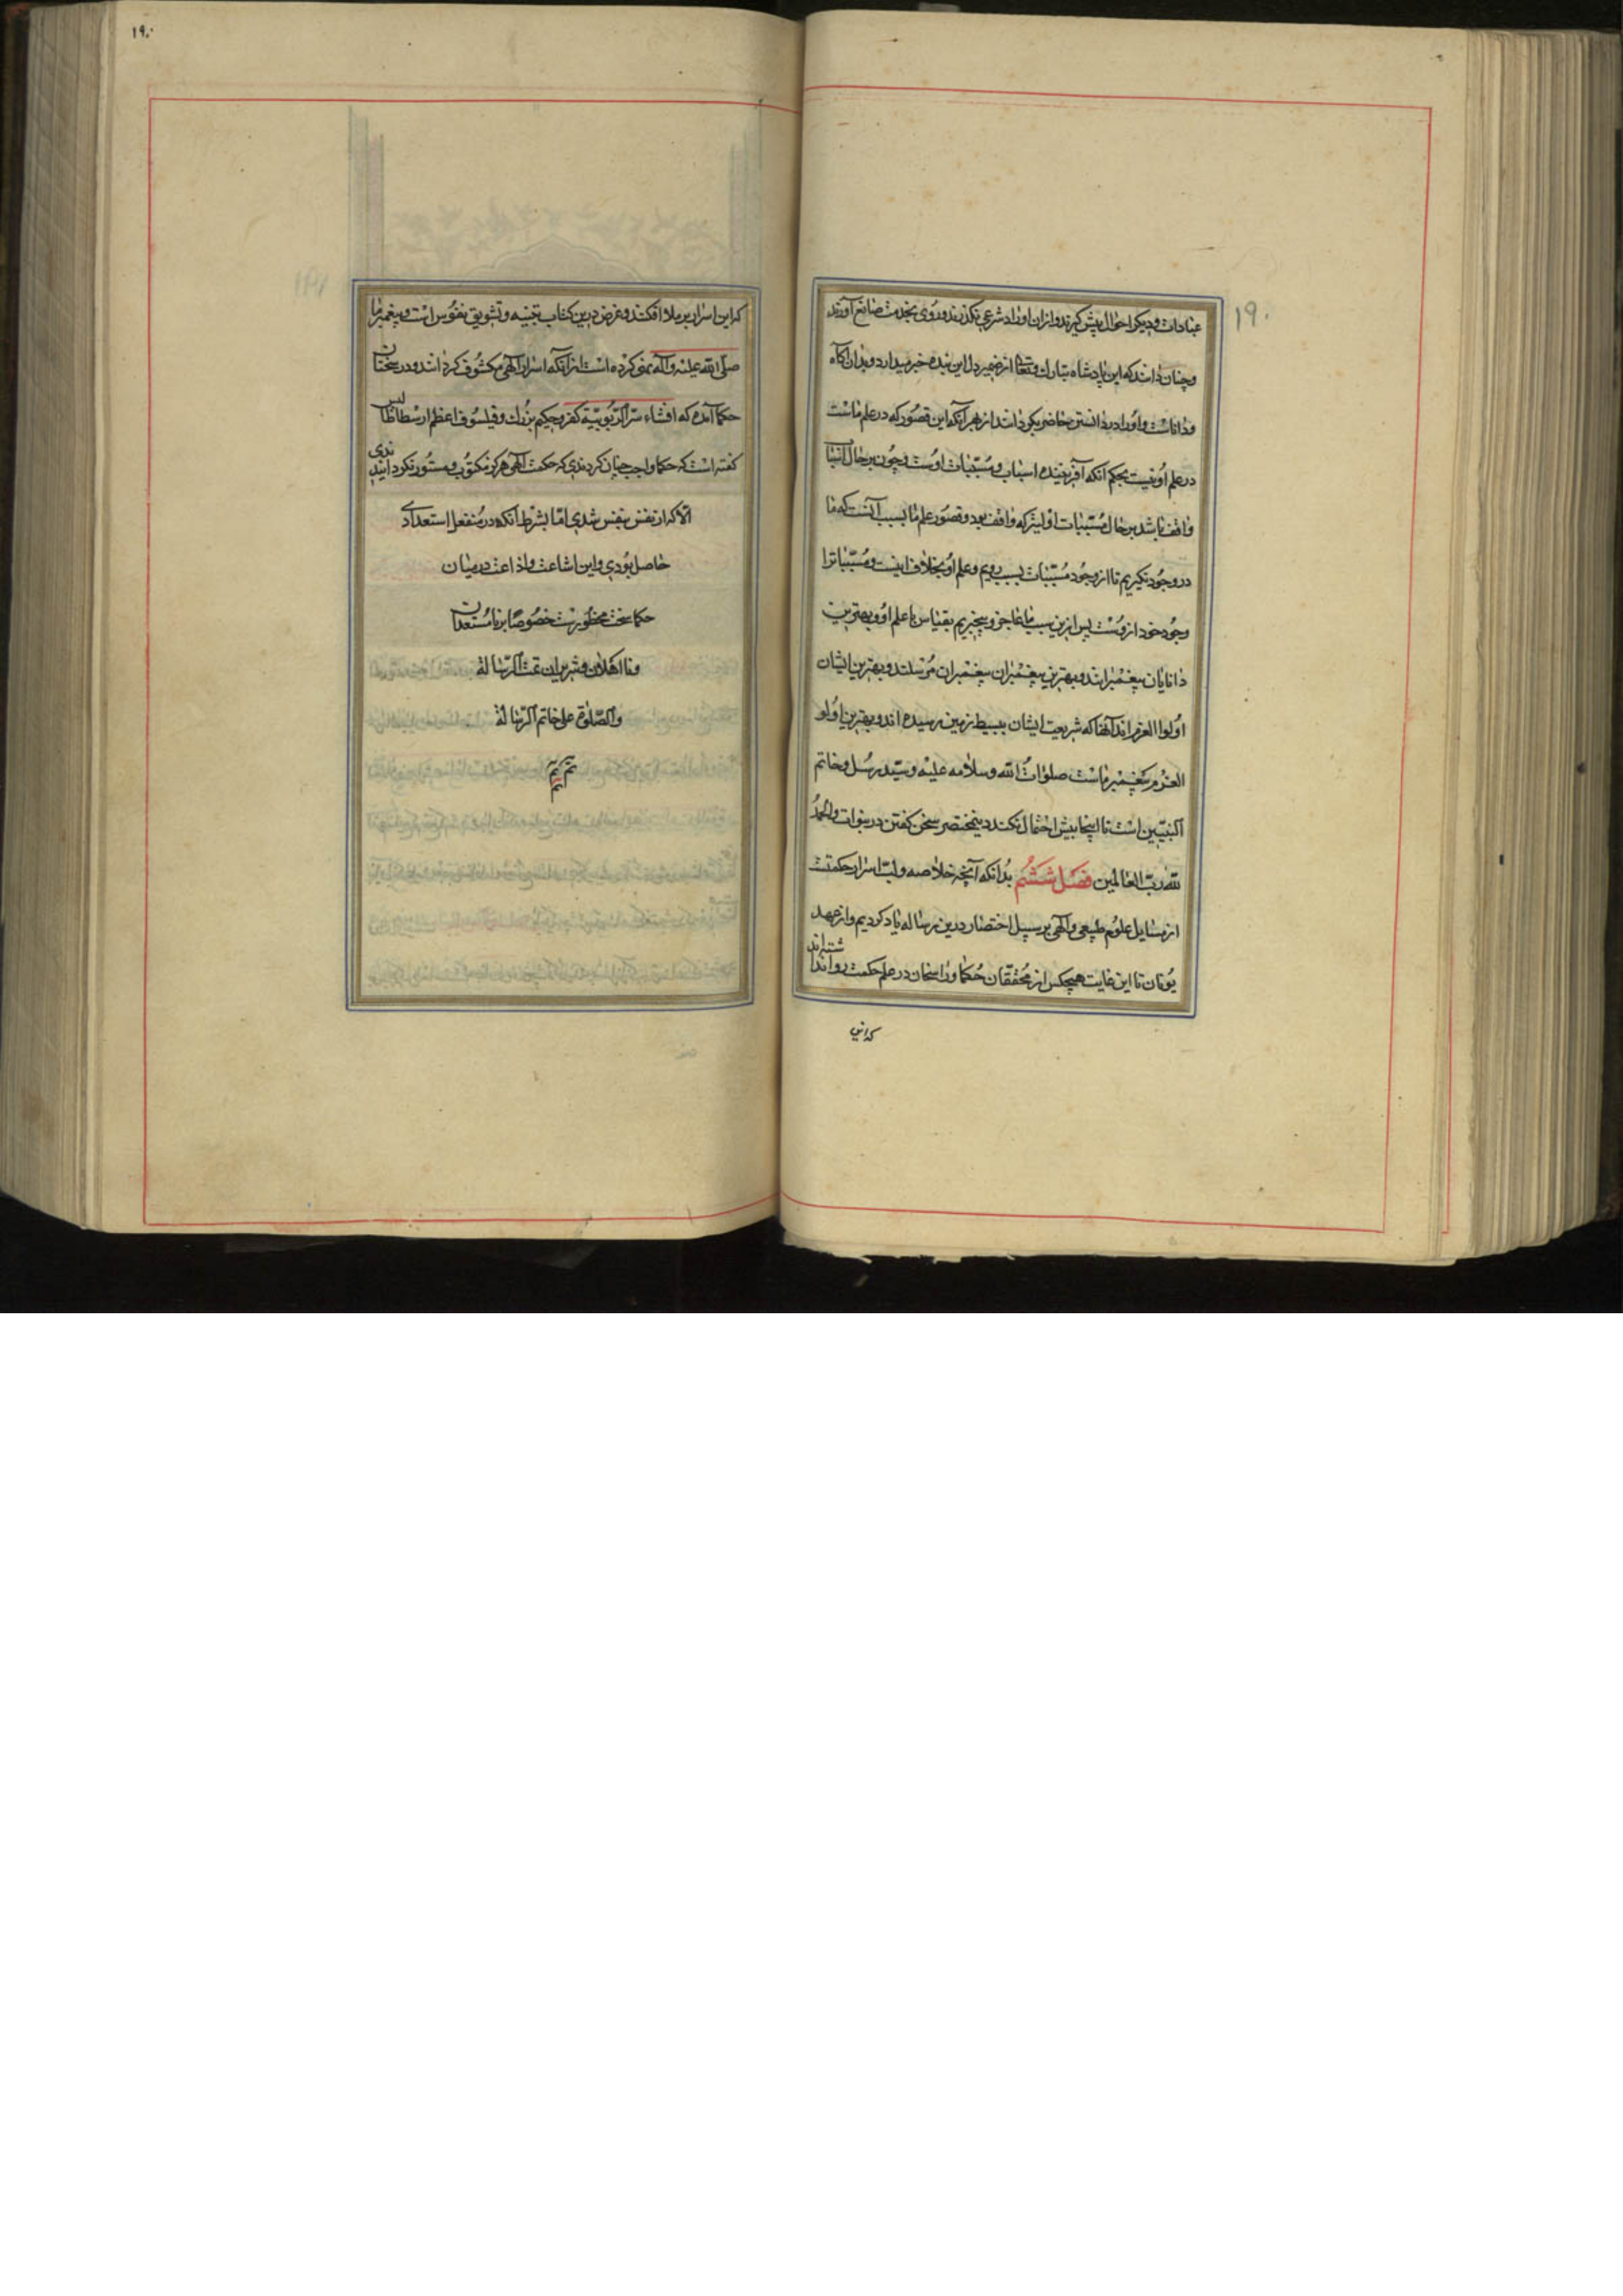 ۱۹۰
عبادات و دیگر احوال پیش گیرند و از ان اوراد شرعی نگذرند و روی بخدمت صانع آورند
و چنان دانند که این پادشاه تبارک و تعالی از ضمیر دل این بنده خبر میدارد و بدان آگاه
و داناست و او را در دانستن حاضر یکی دانند از بهر آنکه این قصور که در علم ماست
در علم او نیست بحکم آنکه آفریننده اسباب و مسببات اوست و چون بر حال اسباب
واقف باشد بر حال مسببات اولیتر که واقف بود و قصور علم ما بسبب آنست که ما
در وجود نگیریم تا از وجود مسببات بسبب رویم و علم او بخلاف اینست و مسببات را
وجود خود از وست پس ازین سبب ما عاجز و بیخبریم بقیاس با علم او و بهترین
دانایان پیغمبرانند و بهترین پیغمبران پیغمبران مرسلند و بهترین ایشان
اولوا العزم اند آنها که شریعت ایشان ببسیط زمین رسیده اند و بهترین اولو
العزم پیغمبر ماست صلوات الله و سلامه علیه و سید رسل و خاتم
النبیین است تا اینجا بیش احتمال نکند درینمختصر سخن گفتن در نبوات والحمد
لله رب العالمین فصل ششم بدانکه آنچه خلاصه و لب اسرار حکمتست
از مسایل علوم طبیعی و الهی بر سبیل اختصار درین رساله یاد کردیم و از عهد
یونان تا این غایت هیچکس از محققان حکما و راسخان در علم حکمت روا نداشته اند
که این
۱۹۰
که این اسرار بر ملا افکند و غرض درین کتاب تنبیه و تشویق نفوس است و پیغمبر ما
صلی الله علیه و آله نهی کرده است از آنکه اسرار الهی مکشوف گردانند و در سخنان
حکما آمده که افشاء سر الربوبیة کفر و حکیم بزرگ و فیلسوف اعظم ارسطاطالیس
گفته است که حکما واجب چنان کردندی که حکمت الهی هرگز مکتوب و مستور نگردانیدندی
الا که از نفس بنفس شدی اما بشرط آنکه در منفعل استعدادی
حاصل بودی و این اشاعت و اذاعت در میان
حکما سخت محظورست خصوصا بر نامستعدان
و نااهلان و شریران تمت الرسالة
والصلوة علی خاتم الرسالة
تم تم
تم